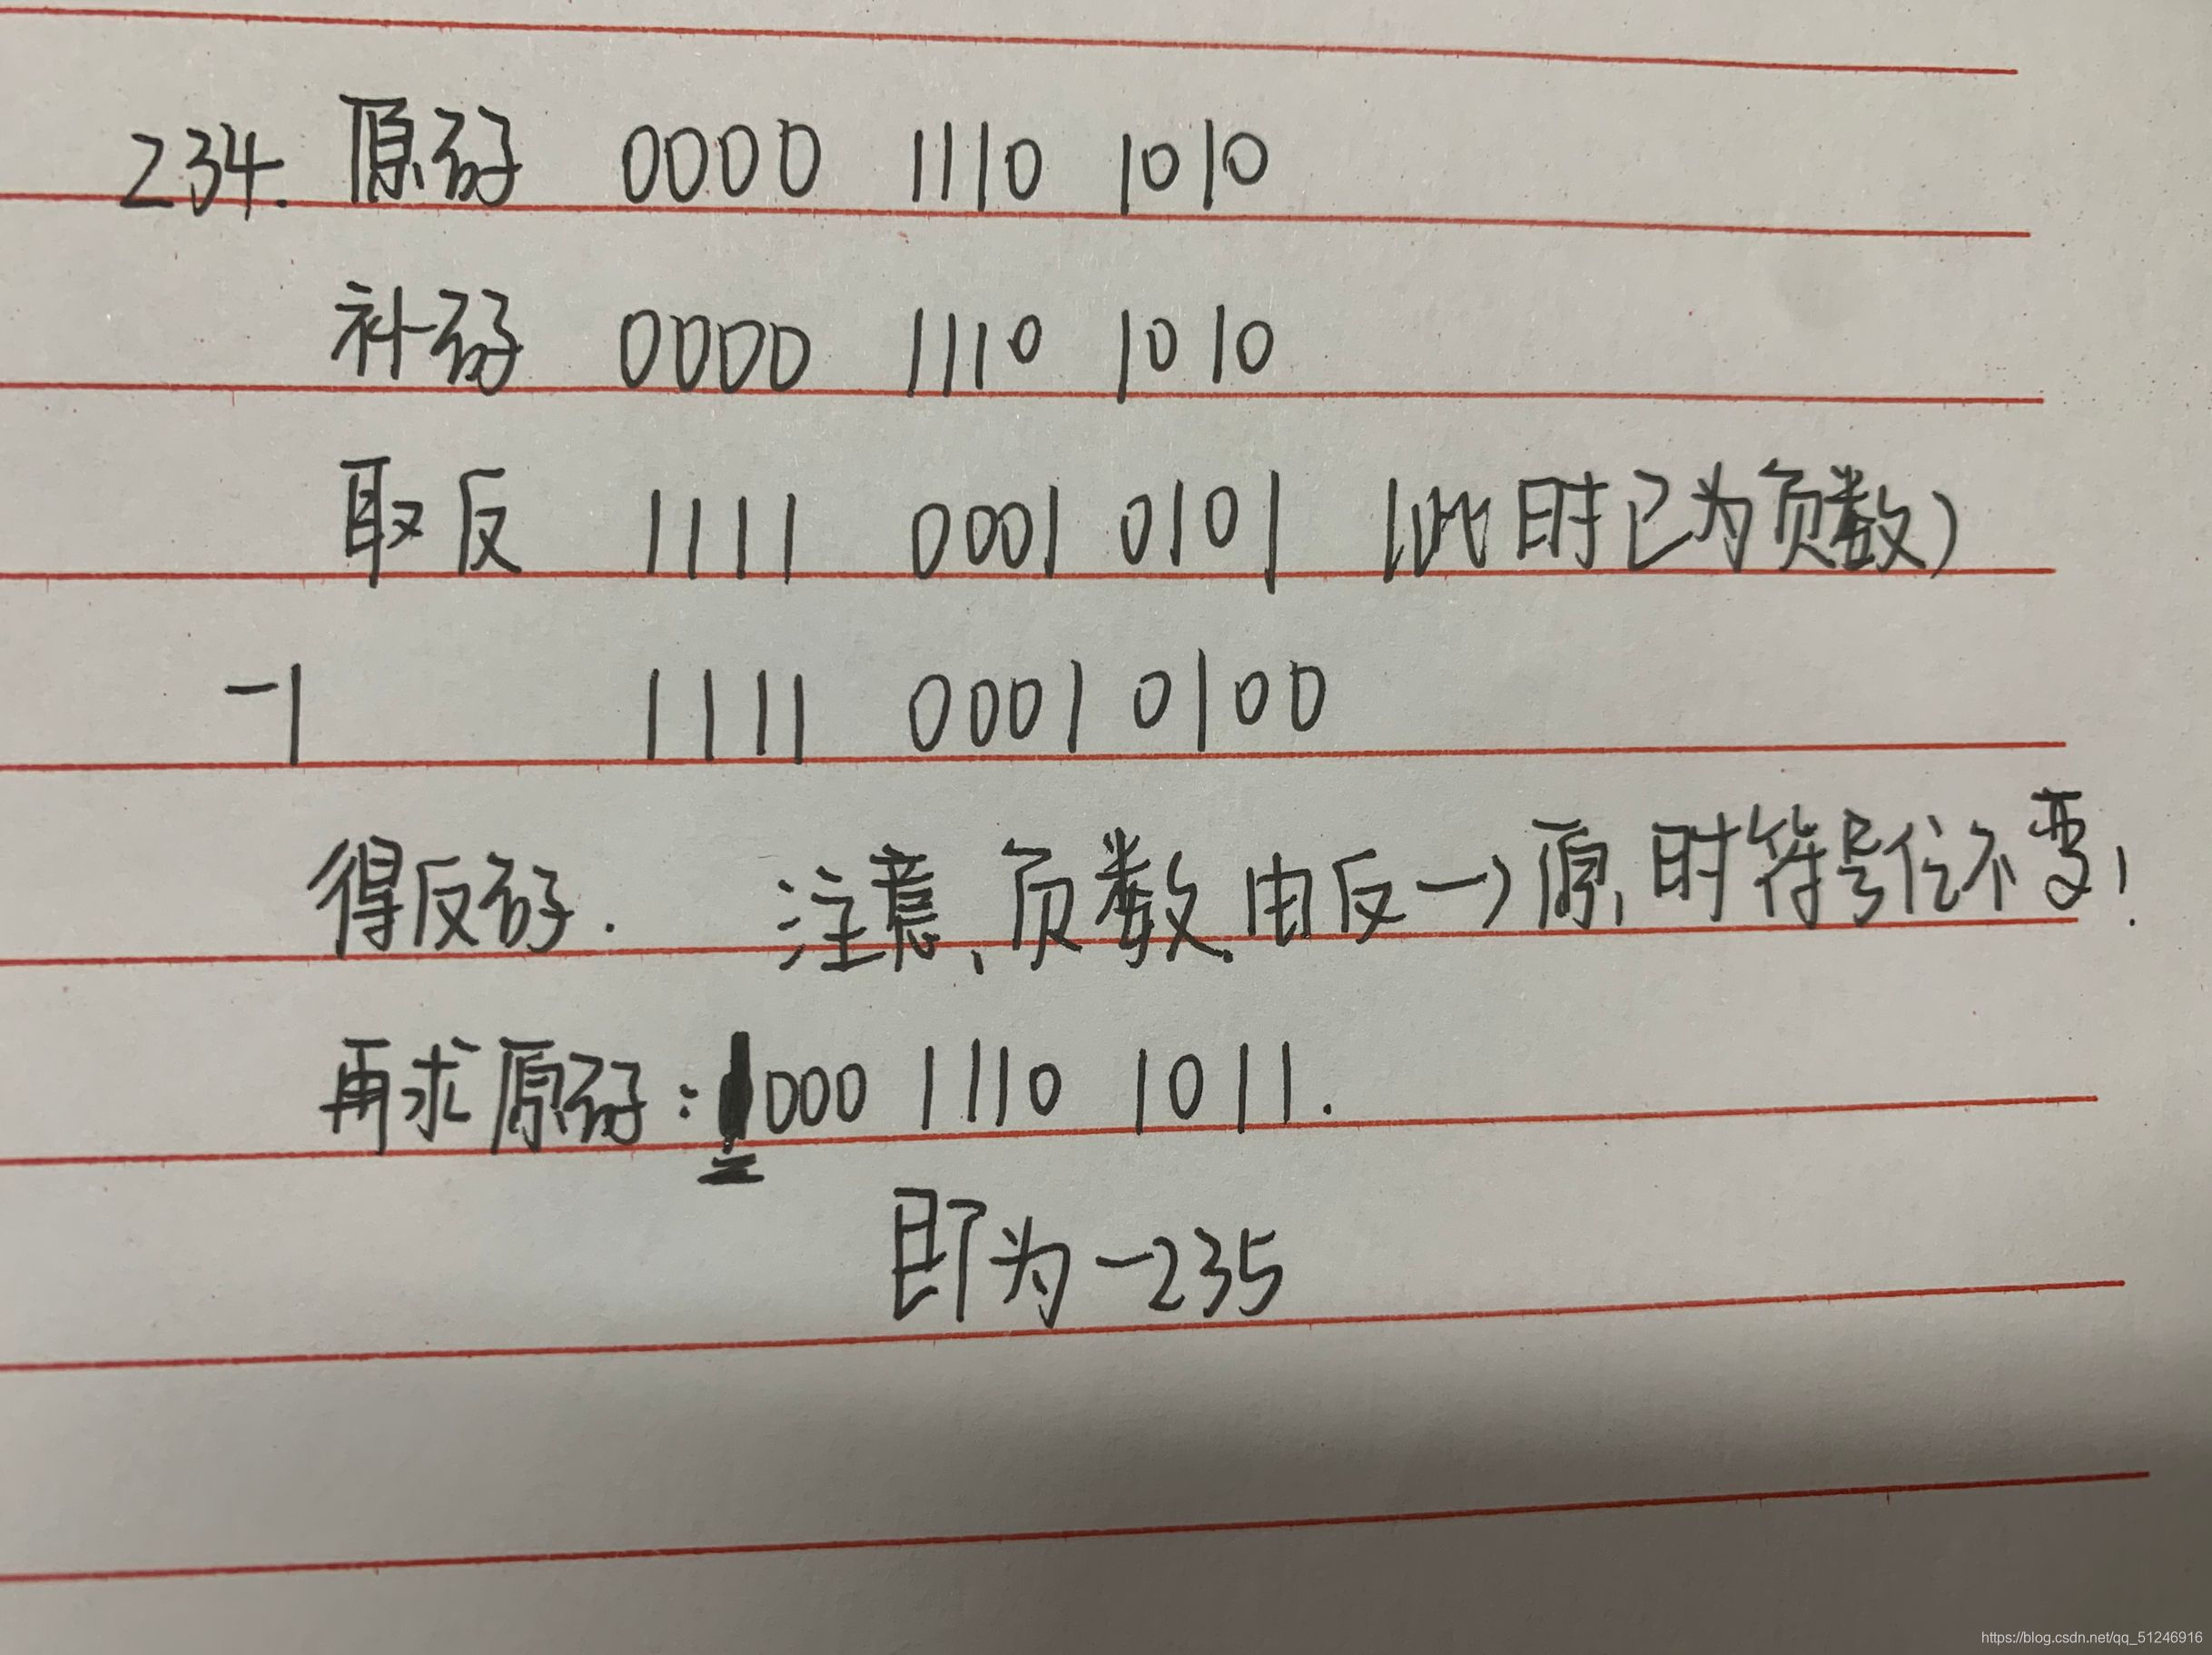 234. 原码 0000 1110 1010
补码 0000 1110 1010
取反 1111 0001 0101 (此时已为负数)
-1 1111 0001 0100
得反码. 注意、负数由反→原,时符号位不变!
再求原码:1000 1110 1011.
即为-235
https://blog.csdn.net/qq_51246916